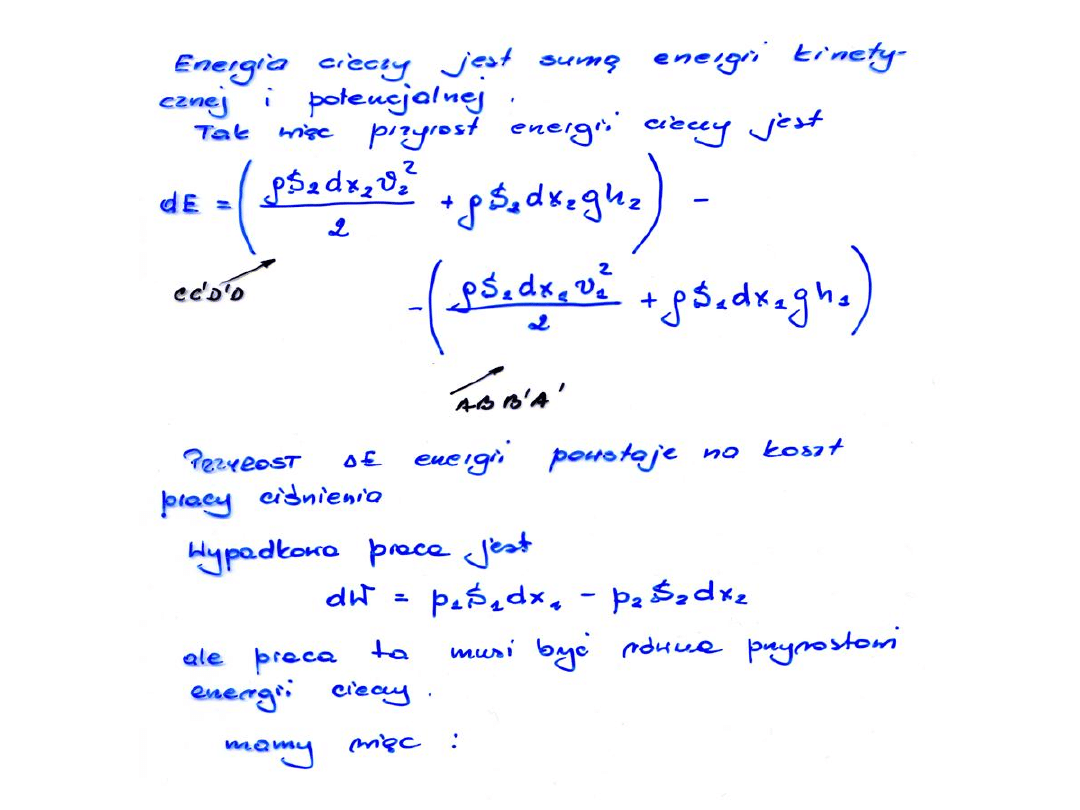 Energia cieczy jest sumą energii kinety-
cznej i potencjalnej.
Tak więc przyrost energii cieczy jest
dE = (ρS₂dx₂v₂²/2 + ρS₂dx₂gh₂) -
CC'D'D
-(ρS₁dx₁v₁²/2 + ρS₁dx₁gh₁)
ABB'A'
PRZYROST ΔE energii powstaje na koszt
pracy ciśnienia
Wypadkowa praca jest
dW = p₁S₁dx₁ - p₂S₂dx₂
ale praca ta musi być równa przyrostowi
energii cieczy.
mamy więc :